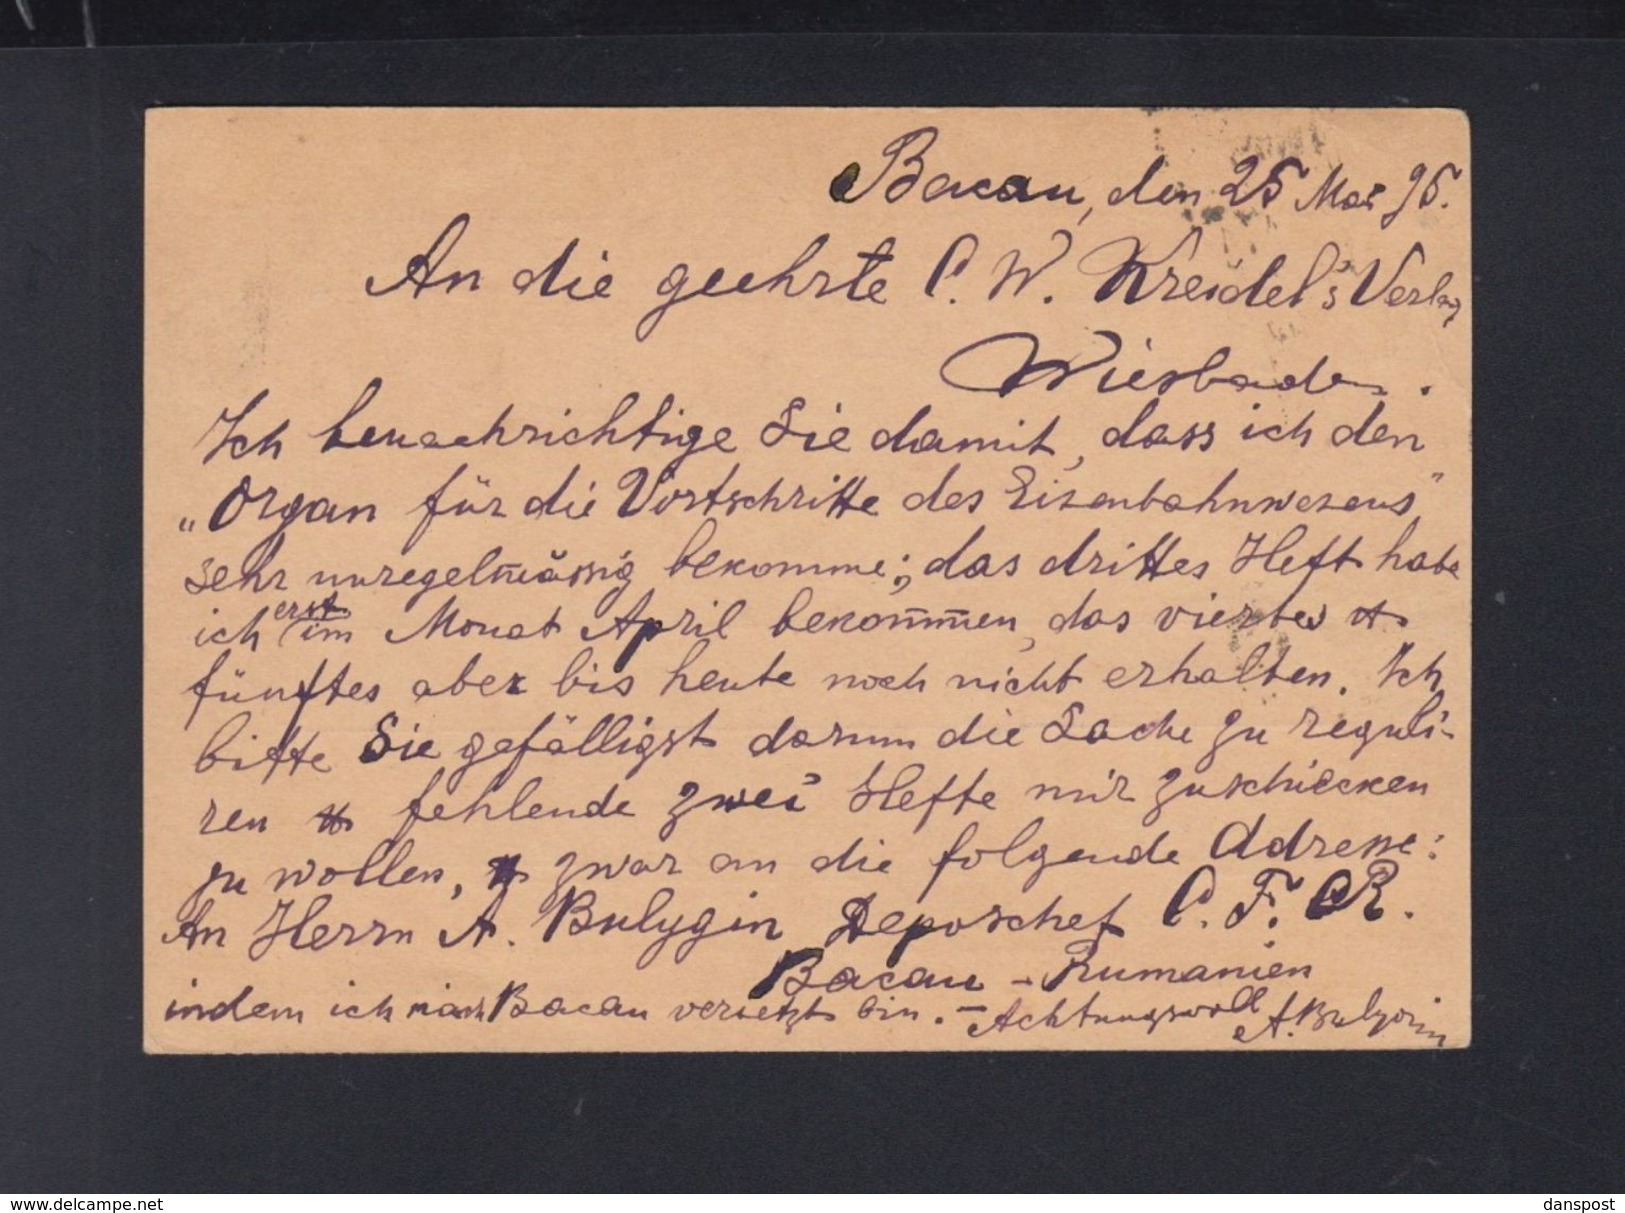 Bacau, den 25 Mai 95.
An die geehrte C. W. Kreidel's Verlag
Wiesbaden.
Ich benachrichtige Sie damit, dass ich den
„Organ für die Vortschritte des Eisenbahnwesens"
sehr unregelmässig bekomme; das drittes Heft habe
ich erst im Monat April bekommen, das viertes u
fünftes aber bis heute noch nicht erhalten. Ich
bitte Sie gefälligst darum die Sache zu reguli-
ren u fehlende zwei Hefte mir zuschiecken
zu wollen, u zwar an die folgende Adresse:
An Herrn A. Bulygin Deposchef C. F. R.
Bacau - Rumanien
indem ich nach Bacau versetzt bin. - Achtungsvoll
A. Bulygin
delcampe.net
danspost